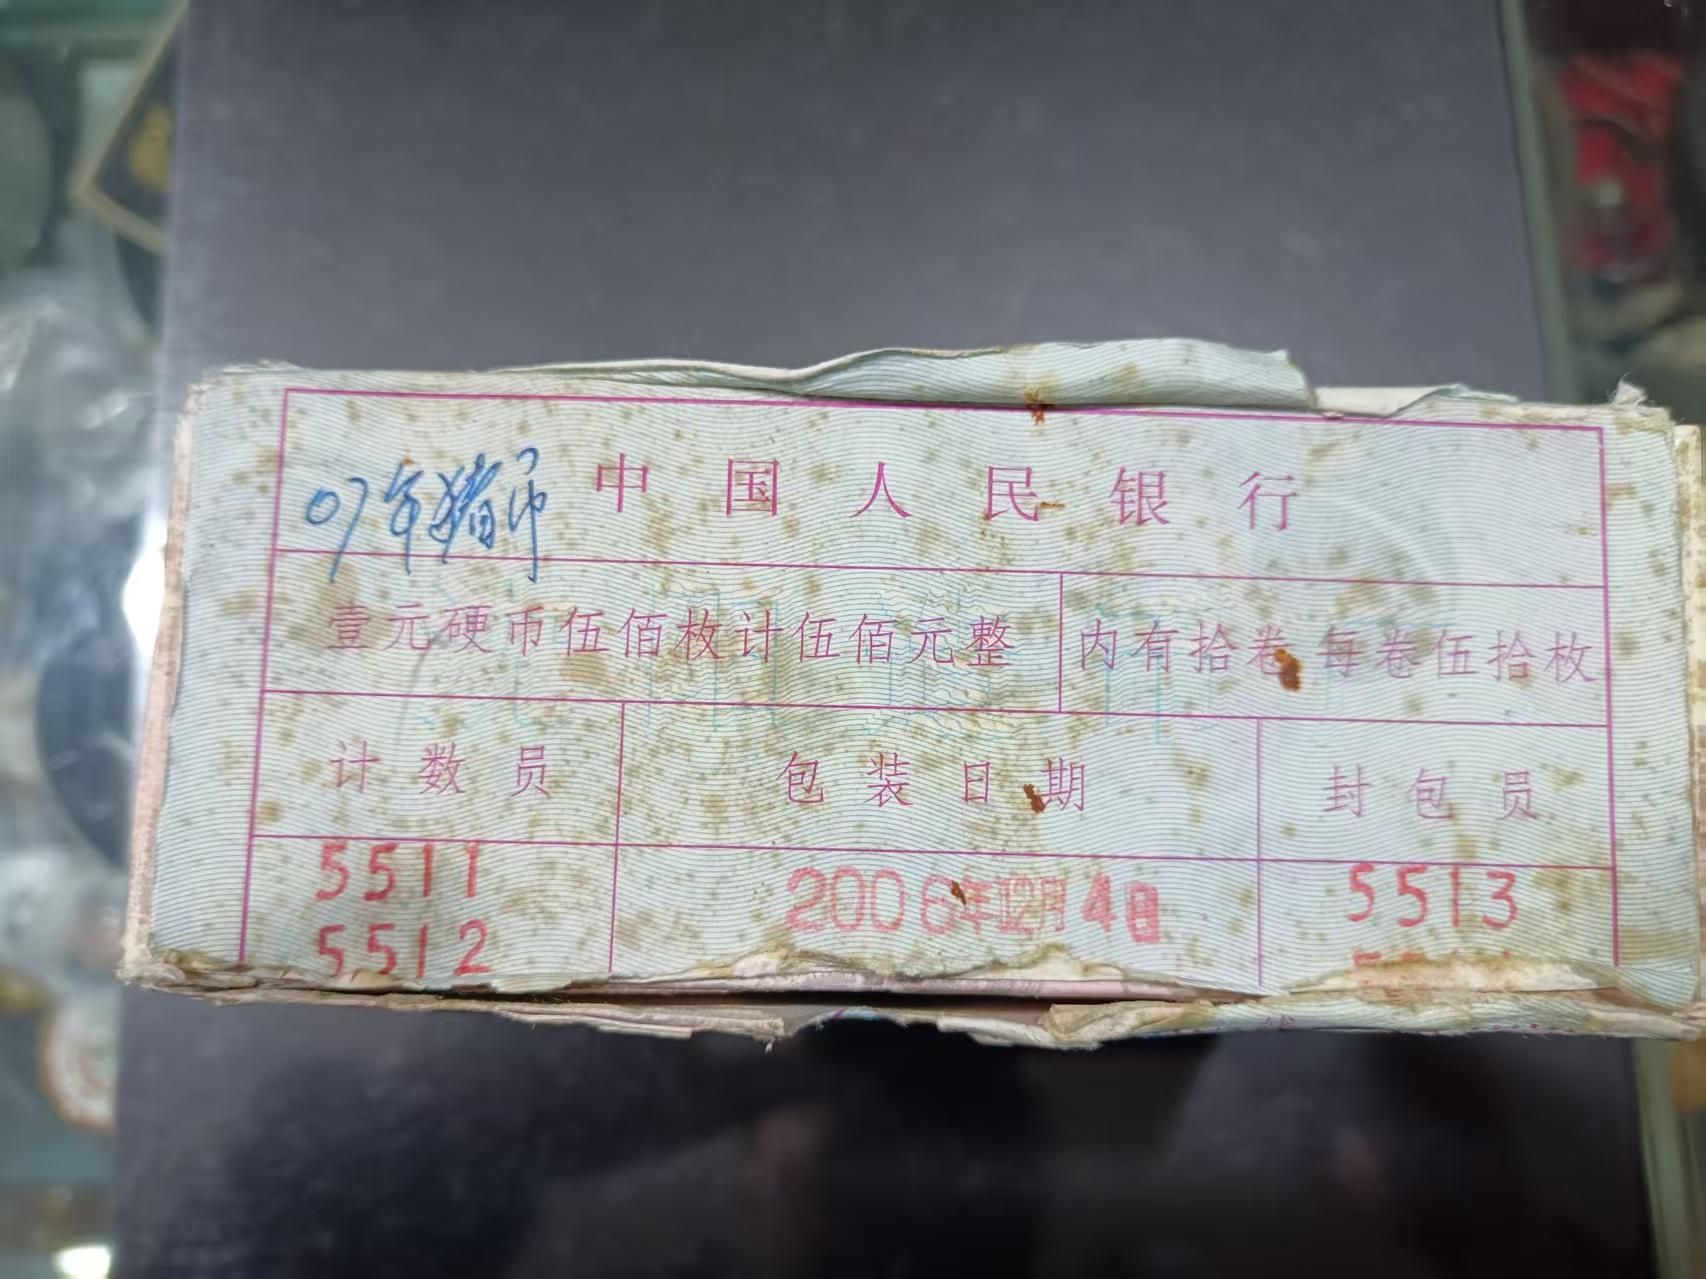 07年猪币 中国人民银行
壹元硬币伍佰枚计伍佰元整 内有拾卷每卷伍拾枚
计数员 包装日期 封包员
5511 2006年12月4日 5513
5512